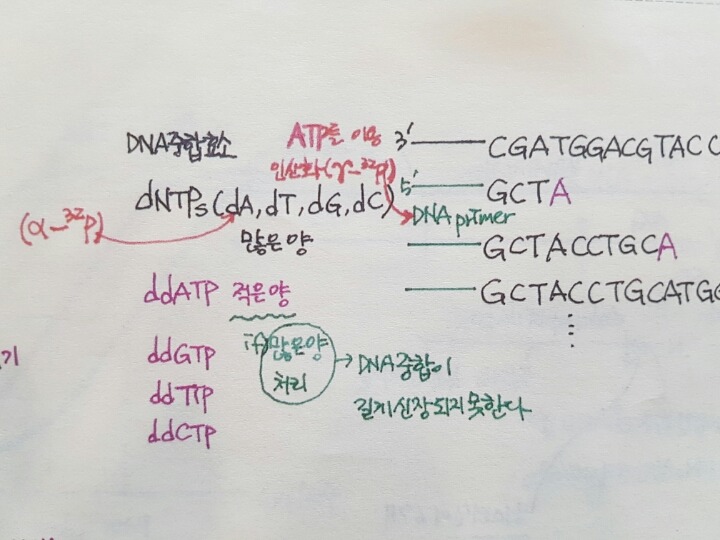 DNA중합효소
ATP를 이용
인산화(γ-³²P)
3' CGATGGACGTACC
dNTPs(dA, dT, dG, dC)
5' GCTA
DNA primer
(α-³²P)
많은양
GCTACCTGCA
ddATP 적은양
GCTACCTGCATGG
ddGTP
if) 많은양
처리
→ DNA중합이
길게 신장되지 못한다
ddTTP
ddCTP
기